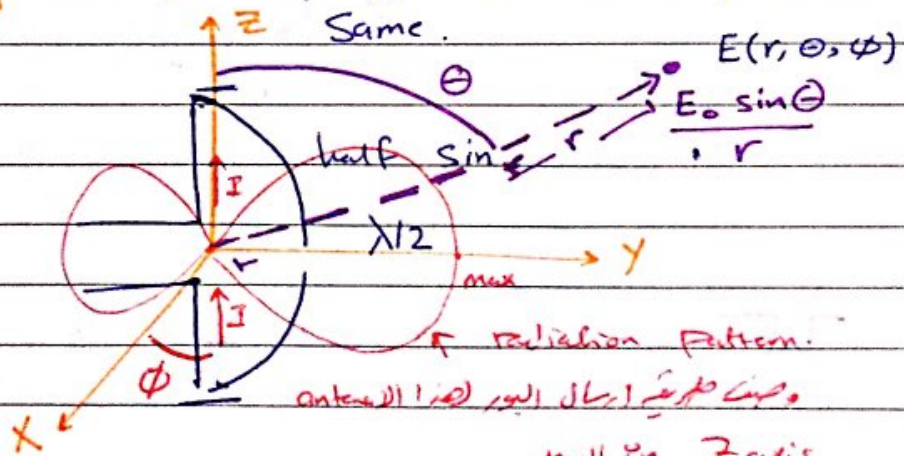 Z Same.
θ E(r, θ, φ)
E₀ sinθ
r r
half sin
I
λ/2 Y
r max
I radiation pattern.
φ
وصف طريقة ارسال البور لهذا الـ antenna.
X null في Z axis